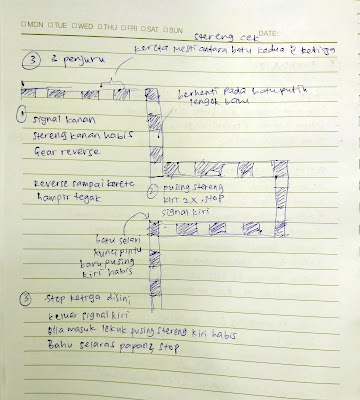 MON TUE WED THU FRI SAT SUN
DATE:
stereng cek
kereta mesti antara batu kedua & ketiga
③ 3 penjuru
berhenti pada batu putih
tengok bahu
①
signal kanan
stereng kanan habis
Gear reverse
reverse sampai kereta
hampir tegak
② pusing stereng
kiri 2X. stop
signal kiri
batu selari
kunci pintu
baru pusing
kiri habis
③ Stop ketiga disini
keluar signal kiri
bila masuk lekuk pusing stereng kiri habis
Bahu selaras papan2 stop